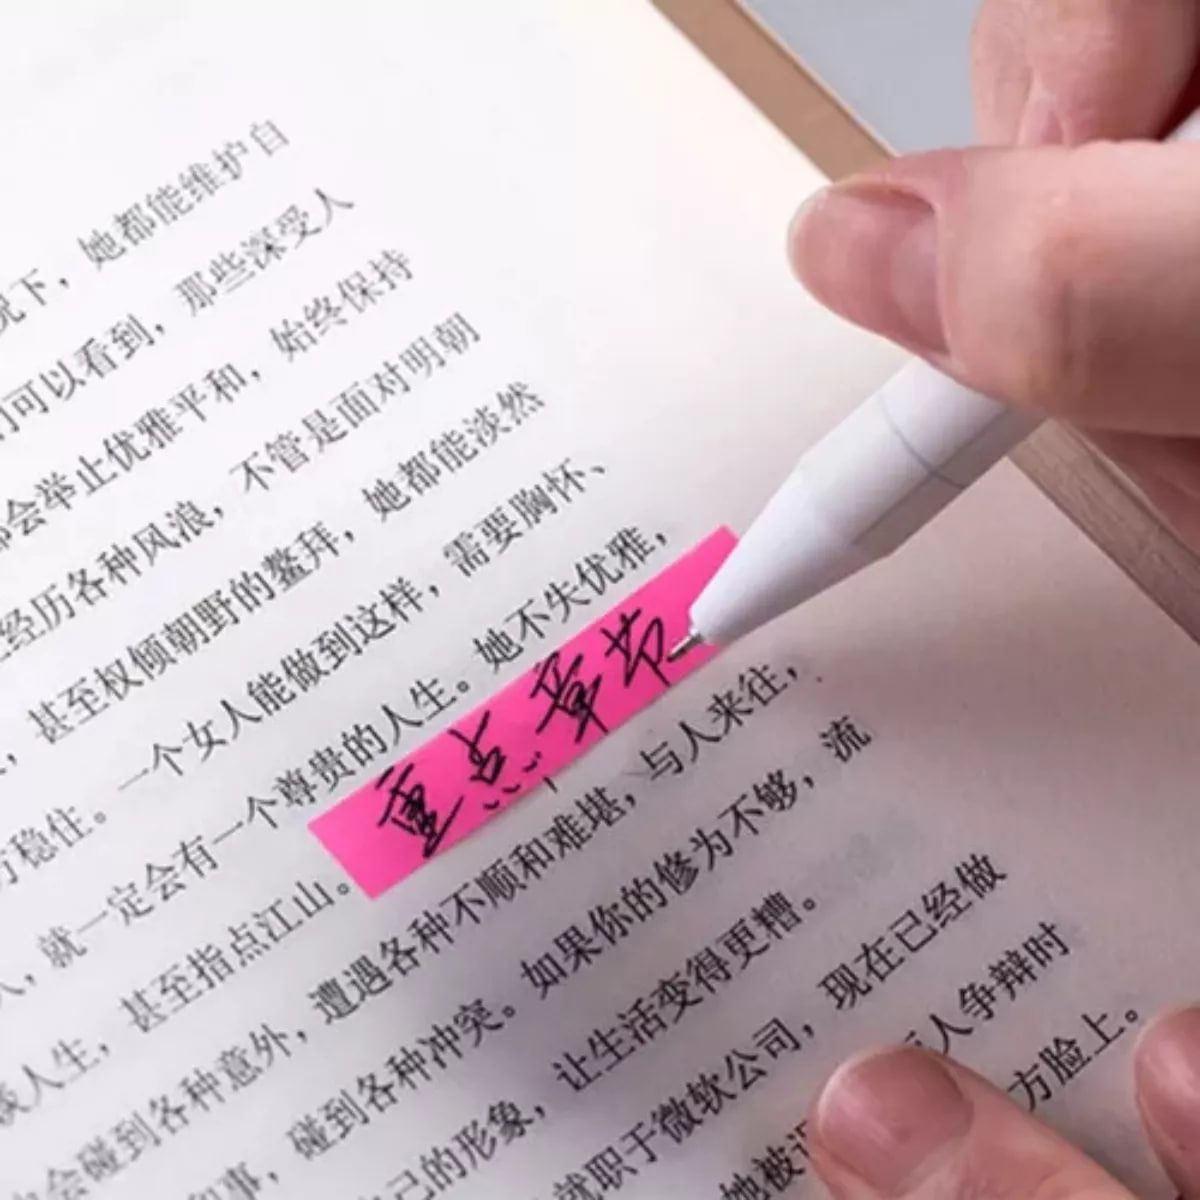 况下，她都能维护自
们可以看到，那些深受人
都会举止优雅平和，始终保持
经历各种风浪，不管是面对明朝
，甚至权倾朝野的鳌拜，她都能淡然
稳住。一个女人能做到这样，需要胸怀、
，就一定会有一个尊贵的人生。她不失优雅，
重点章节
人生，甚至指点江山。
会碰到各种意外，遭遇各种不顺和难堪，与人来往，
事，碰到各种冲突。如果你的修为不够，流
己的形象，让生活变得更糟。
就职于微软公司，现在已经做
她被 人争辩时
方脸上。